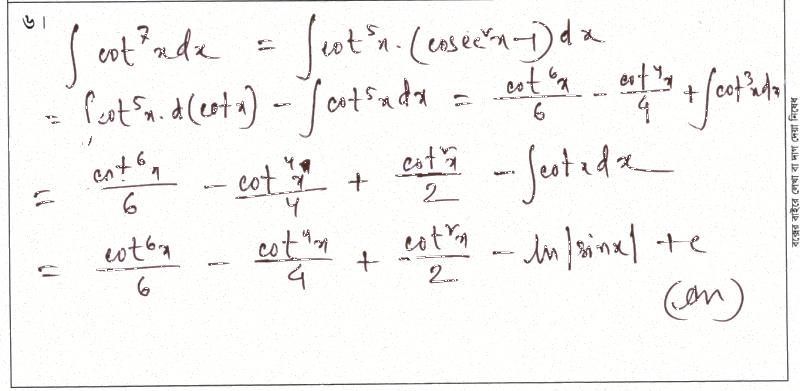 ৬।
∫ cot⁷x dx = ∫cot⁵x. (cosec²x-1) dx
= ∫cot⁵x. d(cotx) - ∫cot⁵x dx = cot⁶x/6 - cot⁴x/4 + ∫cot³x dx
= cot⁶x/6 - cot⁴x/4 + cot²x/2 - ∫cotx dx
= cot⁶x/6 - cot⁴x/4 + cot²x/2 - ln|sinx| + c
(An)
বক্সের বাইরে লেখা বা দাগ দেয়া নিষেধ